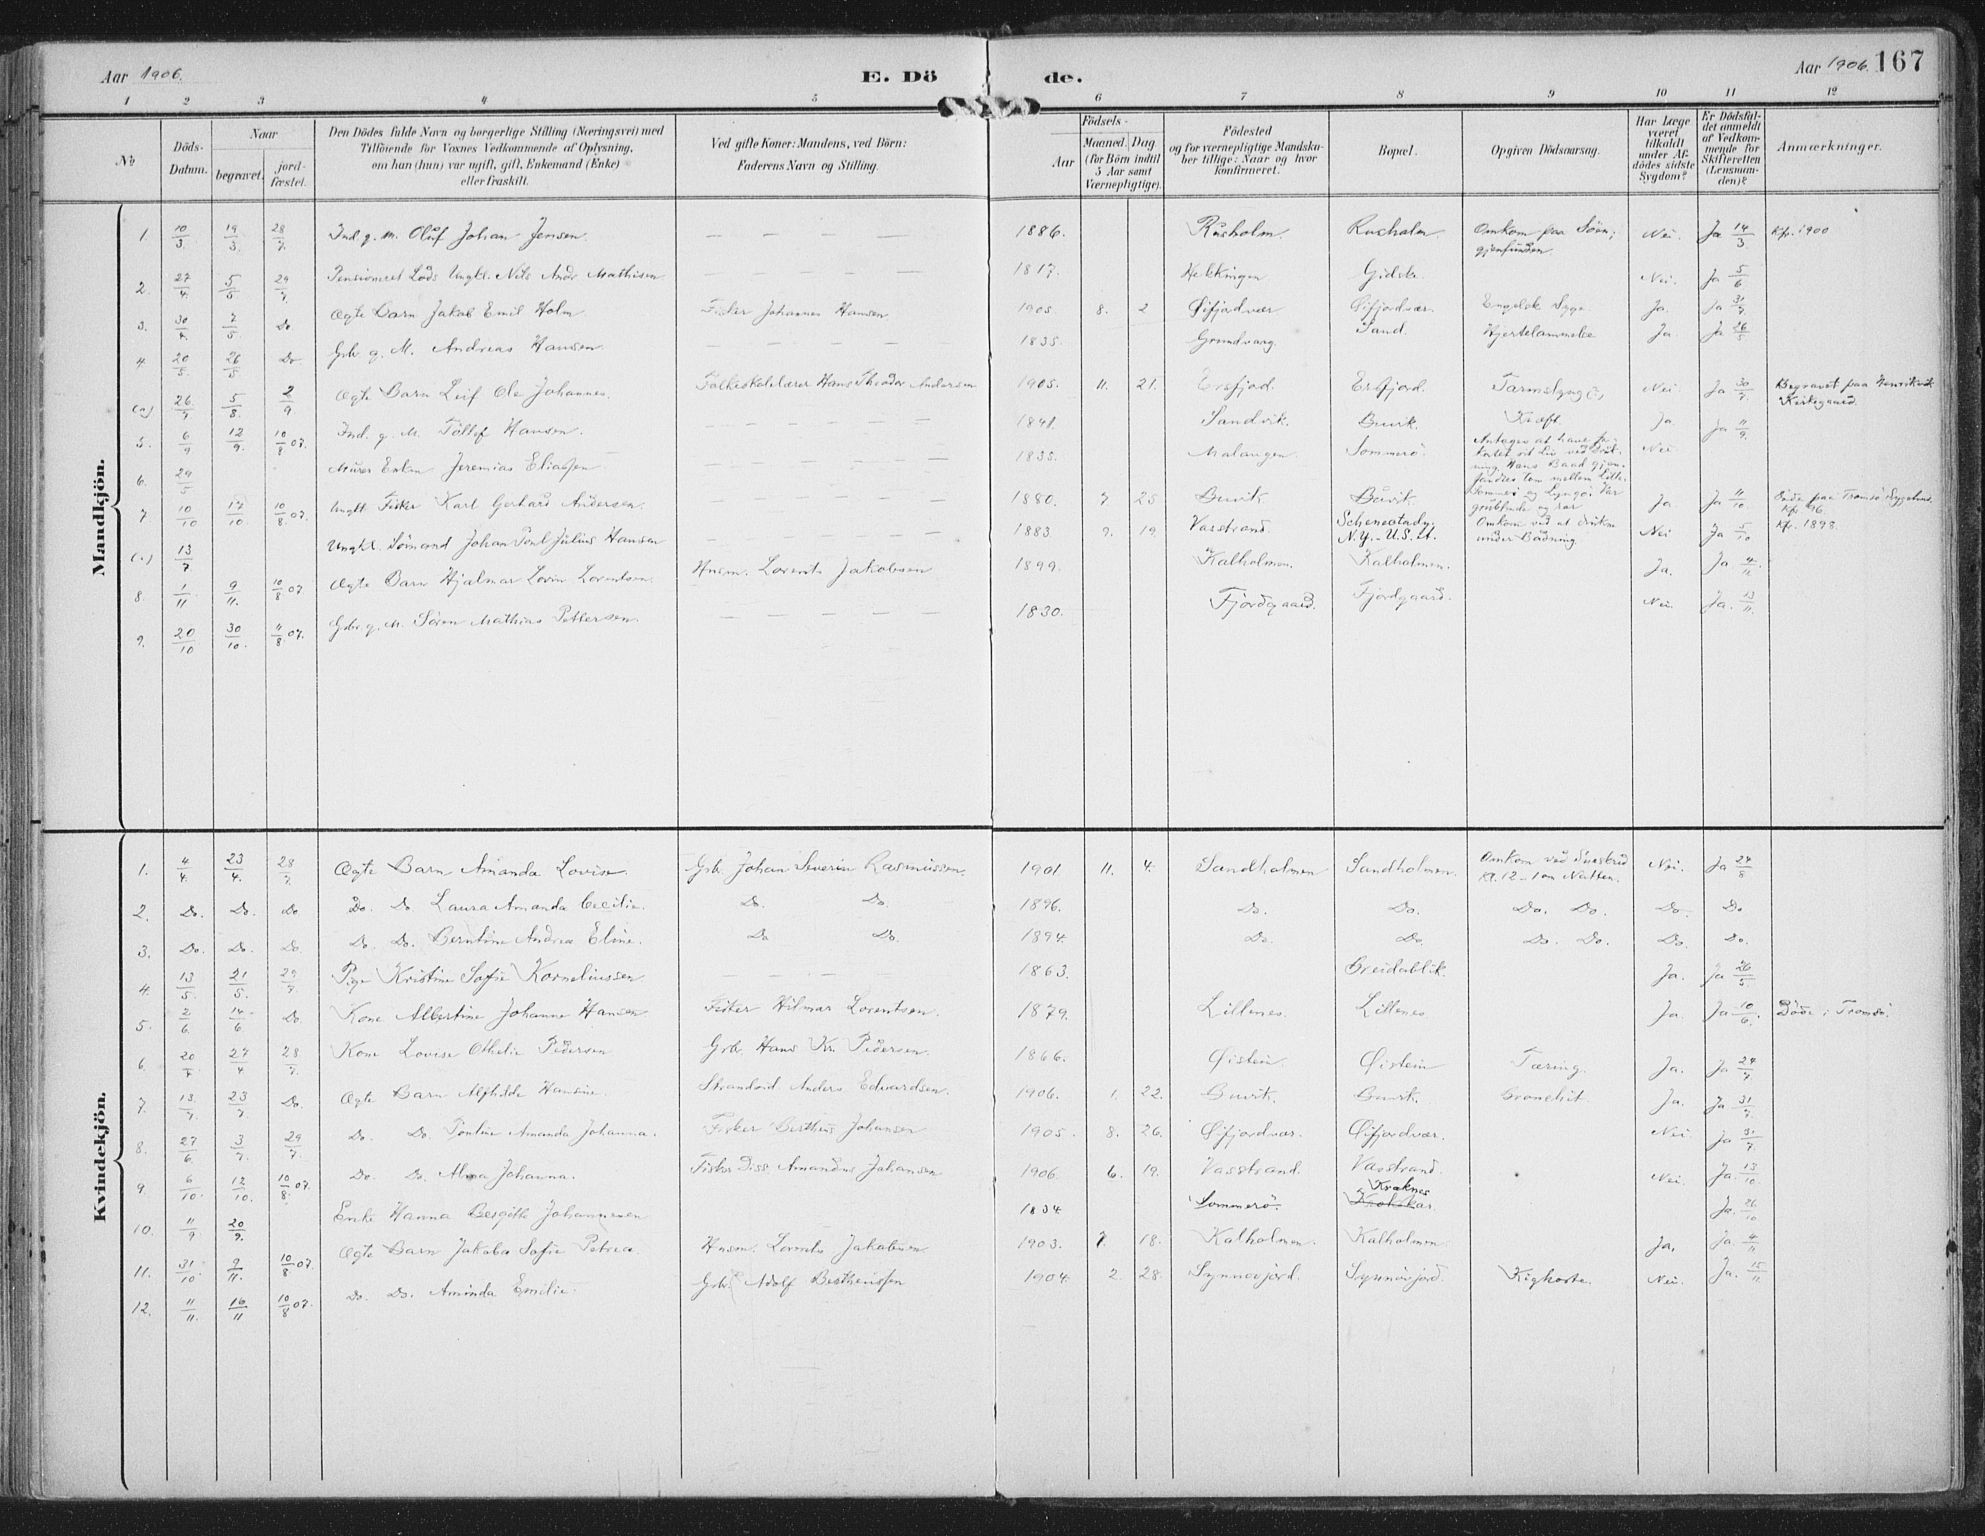 Aar 1906. E. Dö de. Aar 1906. 167
1 2 3 4 5 6 7 8 9 10 11 12
No
Döds-Datum.
Naar
begravet.
jord-fæstet.
Den Dödes fulde Navn og borgerlige Stilling (Næringsvei) med
Tilföiende for Voxnes Vedkommende af Oplysning,
om han (hun) var ugift, gift, Enkemand (Enke)
eller fraskilt.
Ved gifte Koner: Mandens, ved Börn:
Faderens Navn og Stilling.
Födsels-
Aar
Maaned. Dag
(for Börn indtil
5 Aar samt
Værnepligtige).
Födested
og for værnepligtige Mandska-
ber tillige: Naar og hvor
konfirmeret.
Bopæl.
Opgiven Dödsaarsag.
Har Læge
været
tilkaldt
under Af-
dödes sidste
Sygdom?
Er Dödsfal-
det anmeldt
af Vedkom-
mende for
Skifteretten
(Lensman-
den)?
Anmærkninger.
Mandkjön.
1. 10/3 19/3 28/7 Ind. g. m. Oluf Johan Jensen. — — — — 1886. Rusholm. Rusholm. Omkom paa Söen; gjenfunden Nei. Ja 14/3 Kfr. 1900
2. 27/4 5/5 29/7 Pensioneret Lods Ungkl. Nils Andr Mathisen — — — — 1817. Hekkingen Gidsk. Nei. Ja 5/6
3. 30/4 7/5 Do Ægte Barn Jakob Emil Holm Fisker Johannes Hansen 1905 8. 2 Øifjordvær Øifjordvær. Engelsk Syge Ja. Ja 31/7
4. 20/5 26/5 Do Gbr. g. M. Andreas Hansen. — — — — 1835. Grundvaag. Sand. Hjertelammelse Ja. Ja 26/5
(a) 26/7 5/8 2/9 Ægte Barn Leif Ole Johannes. Folkeskolelærer Hans Theodor Andersen 1905. 11. 21. Ersfjord. Ersfjord. Nei Ja 30/7 Begravet paa Kirkegaard.
5. 6/9 12/9. 10/8 07. Ind. g. M. Tollef Hansen. — — — — 1841. Sandvik. Buvik. Kræft. Ja. Ja 11/9.
6. 29/5 Murer Enkm Jeremias Eliassen — — — — 1835. Malangen. Sommerö. Antages at have sit Liv ved Hans Baad gjen- tom mellem Lille- Sommerö og Lyngö. Var og rar Nei
7 10/10 17/10 10/8 07. Ungkl Fisker Karl Gerhard Andersen. — — — — 1880. 7 25 Buvik. Buvik. Ja. Ja 11/10. Döde paa Tromsö Sygehus. Kfr. 96.
(a) 13/7 Ungkl. Sömand Johan Poul Julius Hansen — — — — 1883 9. 19. Vasstrand. Schenestady. N.Y.-U.S.A. Omkom ved at drukne under Badning. Nei Ja 5/10 Kfr. 1898.
8. 1/11 9/11. 10/8 07. Ægte Barn Hjalmar Lorentsen. Husm. Lorents Jakobsen 1899. Kalholmen. Kalholmen. Ja. Ja. 4/11
9. 20/10 30/10. 11/8 07. Gbr. g. M. Sören Mathias Pettersen. — — — — 1830. Fjordgaard. Fjordgaard. Nei. Ja. 13/11.
Kvindekjön.
1. 4/4. 23/4. 28/7 Ægte Barn Amanda Lovise Gbr. Johan Severin Rasmussen 1901. 11. 4. Sandholmen Sandholmen. Omkom ved Sneskred Kl. 12-1 om Natten. Nei. Ja 24/8
2. Do. Do. Do Do. Do Laura Amanda Cecilie. Do. Do. 1896. Do. Do. Do. Do. Do. Do
3. Do. Do. Do Do. Do. Berntine Andrea Eline. Do Do. 1894. Do. Do. Do. Do. Do Do.
4. 13/5 21/5. 29/7 Pige Kristine Sofie Korneliussen — — — 1863. Breidablik. Ja. Ja 26/5
5. 2/6. 14/6 Do. Kone Albertine Johanne Hansen Fisker Hilmar Lorentsen. 1879. Lillenes. Lillenes Ja. Ja 10/6. Döde i Tromsö.
6. 20/4 27/4 28/7. Kone Lovise Othelie Pedersen Gbr. Hans Kr. Pedersen. 1866. Øistein. Øistein Tæring. Ja. Ja 24/4
7. 13/7 23/7. Do. Ægte Barn Alfhilde Hansine. Strandsid. Anders Edvardsen. 1906. 1. 22. Buvik. Buvik. Bronchit. Ja. Ja 31/7.
8. 27/6. 3/7. 29/7. Do. Do. Pouline Amanda Johanna. Fisker Bertheus Johansen 1905. 8. 26. Øifjordvær. Øifjordvær. Nei. Ja 31/7
9. 6/10. 12/10. 10/8. 07. Do. Do. Alma Johanna. Fisker Diss Amandus Johansen 1906. 6. 19. Vasstrand. Vasstrand. Nei. Ja. 13/10
10. 11/9 20/9. Enke Hanna Bergitte Johannesen 1834 Sommerö. Kræknes Ja. 26/10
11. 31/10. 9/11. 10/8 07. Ægte Barn Jakoba Sofie Petrea Husm. Lorents Jakobsen 1903. 7. 18. Kalholmen. Kalholmen. Ja, Ja 4/11
12. 11/11. 16/11 10/8 07. Do. Do. Aminda Emilie. Gbr. Adolf Bertheussen 1904. 2. 28. Synnøvjord. Synnøvjord. Kighoste. Nei. Ja. 15/11.